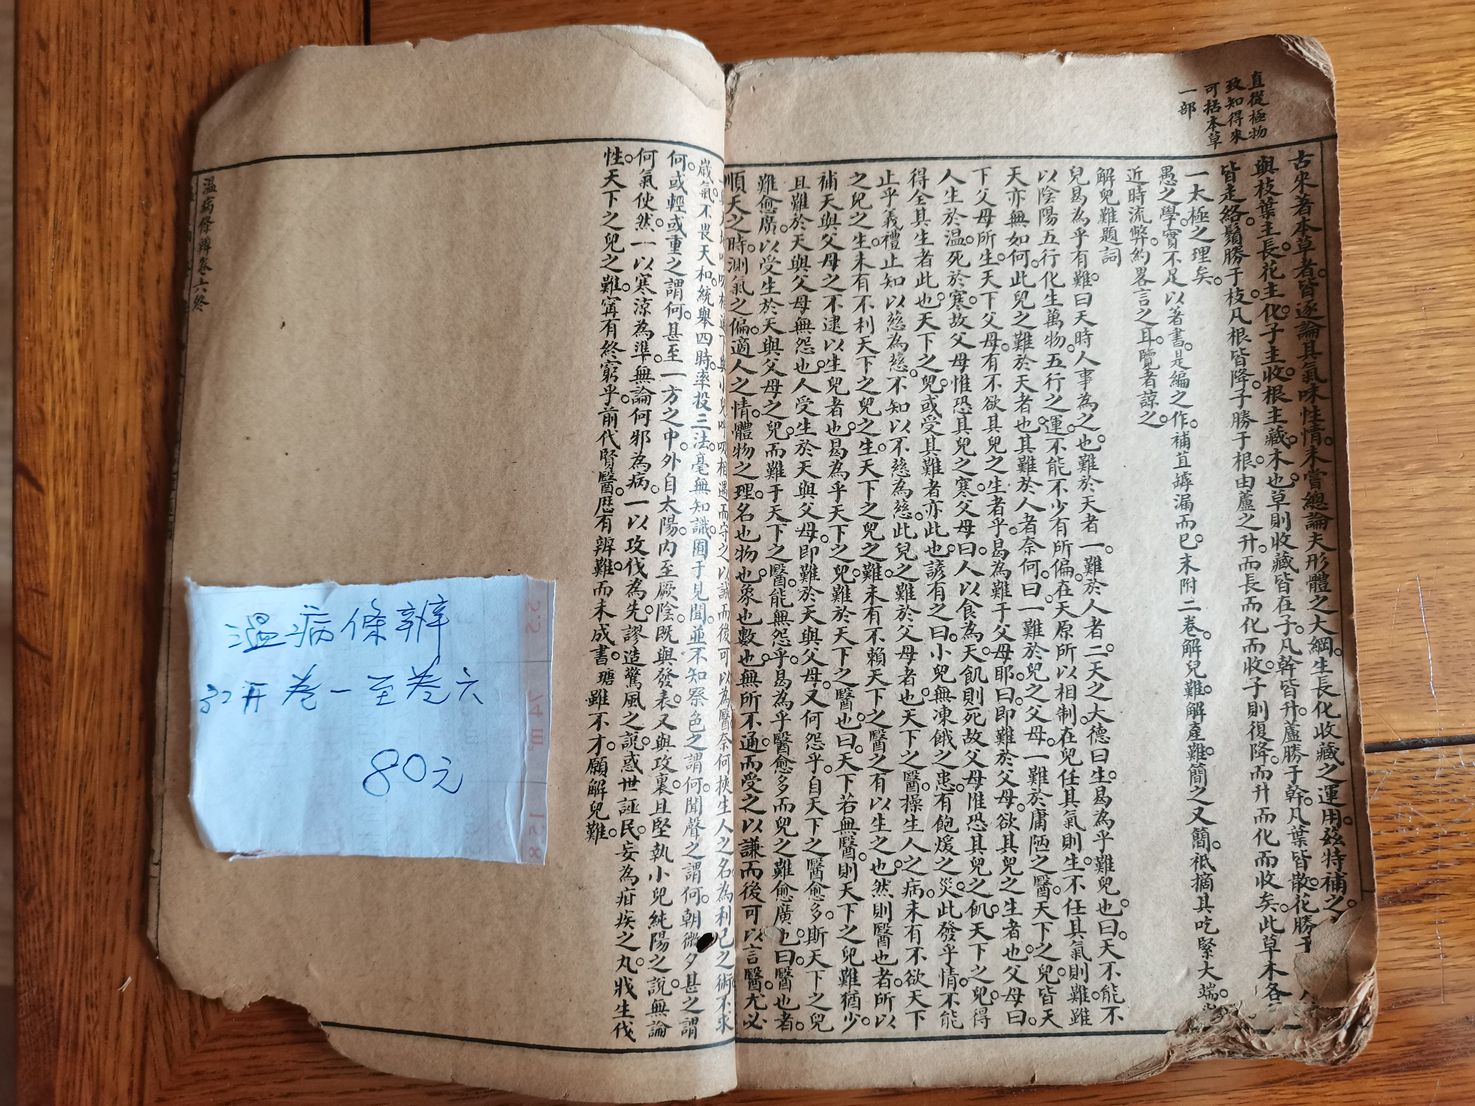 直從極物
致知得來
可括本草
一部
古來著本草者皆逐論其氣味性情未嘗總論夫形體之大綱生長化收藏之運用茲特補之
與枝葉主長花主化子主收根主藏木也草則收藏皆在子凡幹皆升蘆勝于幹凡葉皆散花勝于
皆走絡鬚勝于枝凡根皆降子勝于根由蘆之升而長而化而收子則復降而升而化而收矣此草木各
一太極之理矣
愚之學實不足以著書是編之作補苴罅漏而已末附二卷解兒難解產難簡之又簡祇摘其吃緊大端
近時流弊約畧言之耳覽者諒之
解兒難題詞
兒曷為乎有難曰天時人事為之也難於天者一難於人者二天之大德曰生曷為乎難兒也曰天不能不
以陰陽五行化生萬物五行之運不能不少有所偏在天原所以相制在兒任其氣則生不任其氣則難雖
天亦無如何此兒之難於天者也其難於人者奈何曰一難於兒之父母一難於庸陋之醫天下之兒皆天
下父母所生天下父母有不欲其兒之生者乎曷為難于父母耶曰即難於父母欲其兒之生者也父母曰
人生於温死於寒故父母惟恐其兒之寒父母曰人以食為天飢則死故父母惟恐其兒之飢天下之兒得
得全其生者此也天下之兒或受其難者亦此也諺有之曰小兒無凍餓之患有飽煖之災此發乎情不能
止乎義禮止知以慈為慈不知以不慈為慈此兒之難於父母者也天下之醫操生人之病未有不欲天下
之兒之生未有不利天下之兒之生天下之兒之難未有不賴天下之醫之有以生之也然則醫也者所以
補天與父母之不逮以生兒者也曷為乎天下之兒難於天下之醫也曰天下若無醫則天下之兒難猶少
且難於天與父母無怨也人受生於天與父母即難於天與父母又何怨乎自天下之醫愈多斯天下之兒
難愈廣以受生於天與父母之兒而難于天下之醫能無怨乎曷為乎醫愈多而兒之難愈廣也曰醫也者
順天之時測氣之偏適人之情體物之理名也物也象也數也無所不通而受之以謙而後可以言醫尤必
相遇而守之以誠而後可以為醫奈何挾生人之名為利己之術不求
歲氣不畏天和統舉四時率投三法毫無知識囿于見聞並不知察色之謂何聞聲之謂何朝微夕甚之謂
何或輕或重之謂何甚至一方之中外自太陽內至厥陰既與發表又與攻裏且堅執小兒純陽之說無論
何氣使然一以寒涼為準無論何邪為病一以攻伐為先謬造驚風之說惑世誣民妄為疳疾之丸戕生伐
性天下之兒之難寗有終窮乎前代賢醫歷有辨難而未成書瑭雖不才願解兒難
溫病條辨卷六終
溫病條辨
卷一至卷六
80元